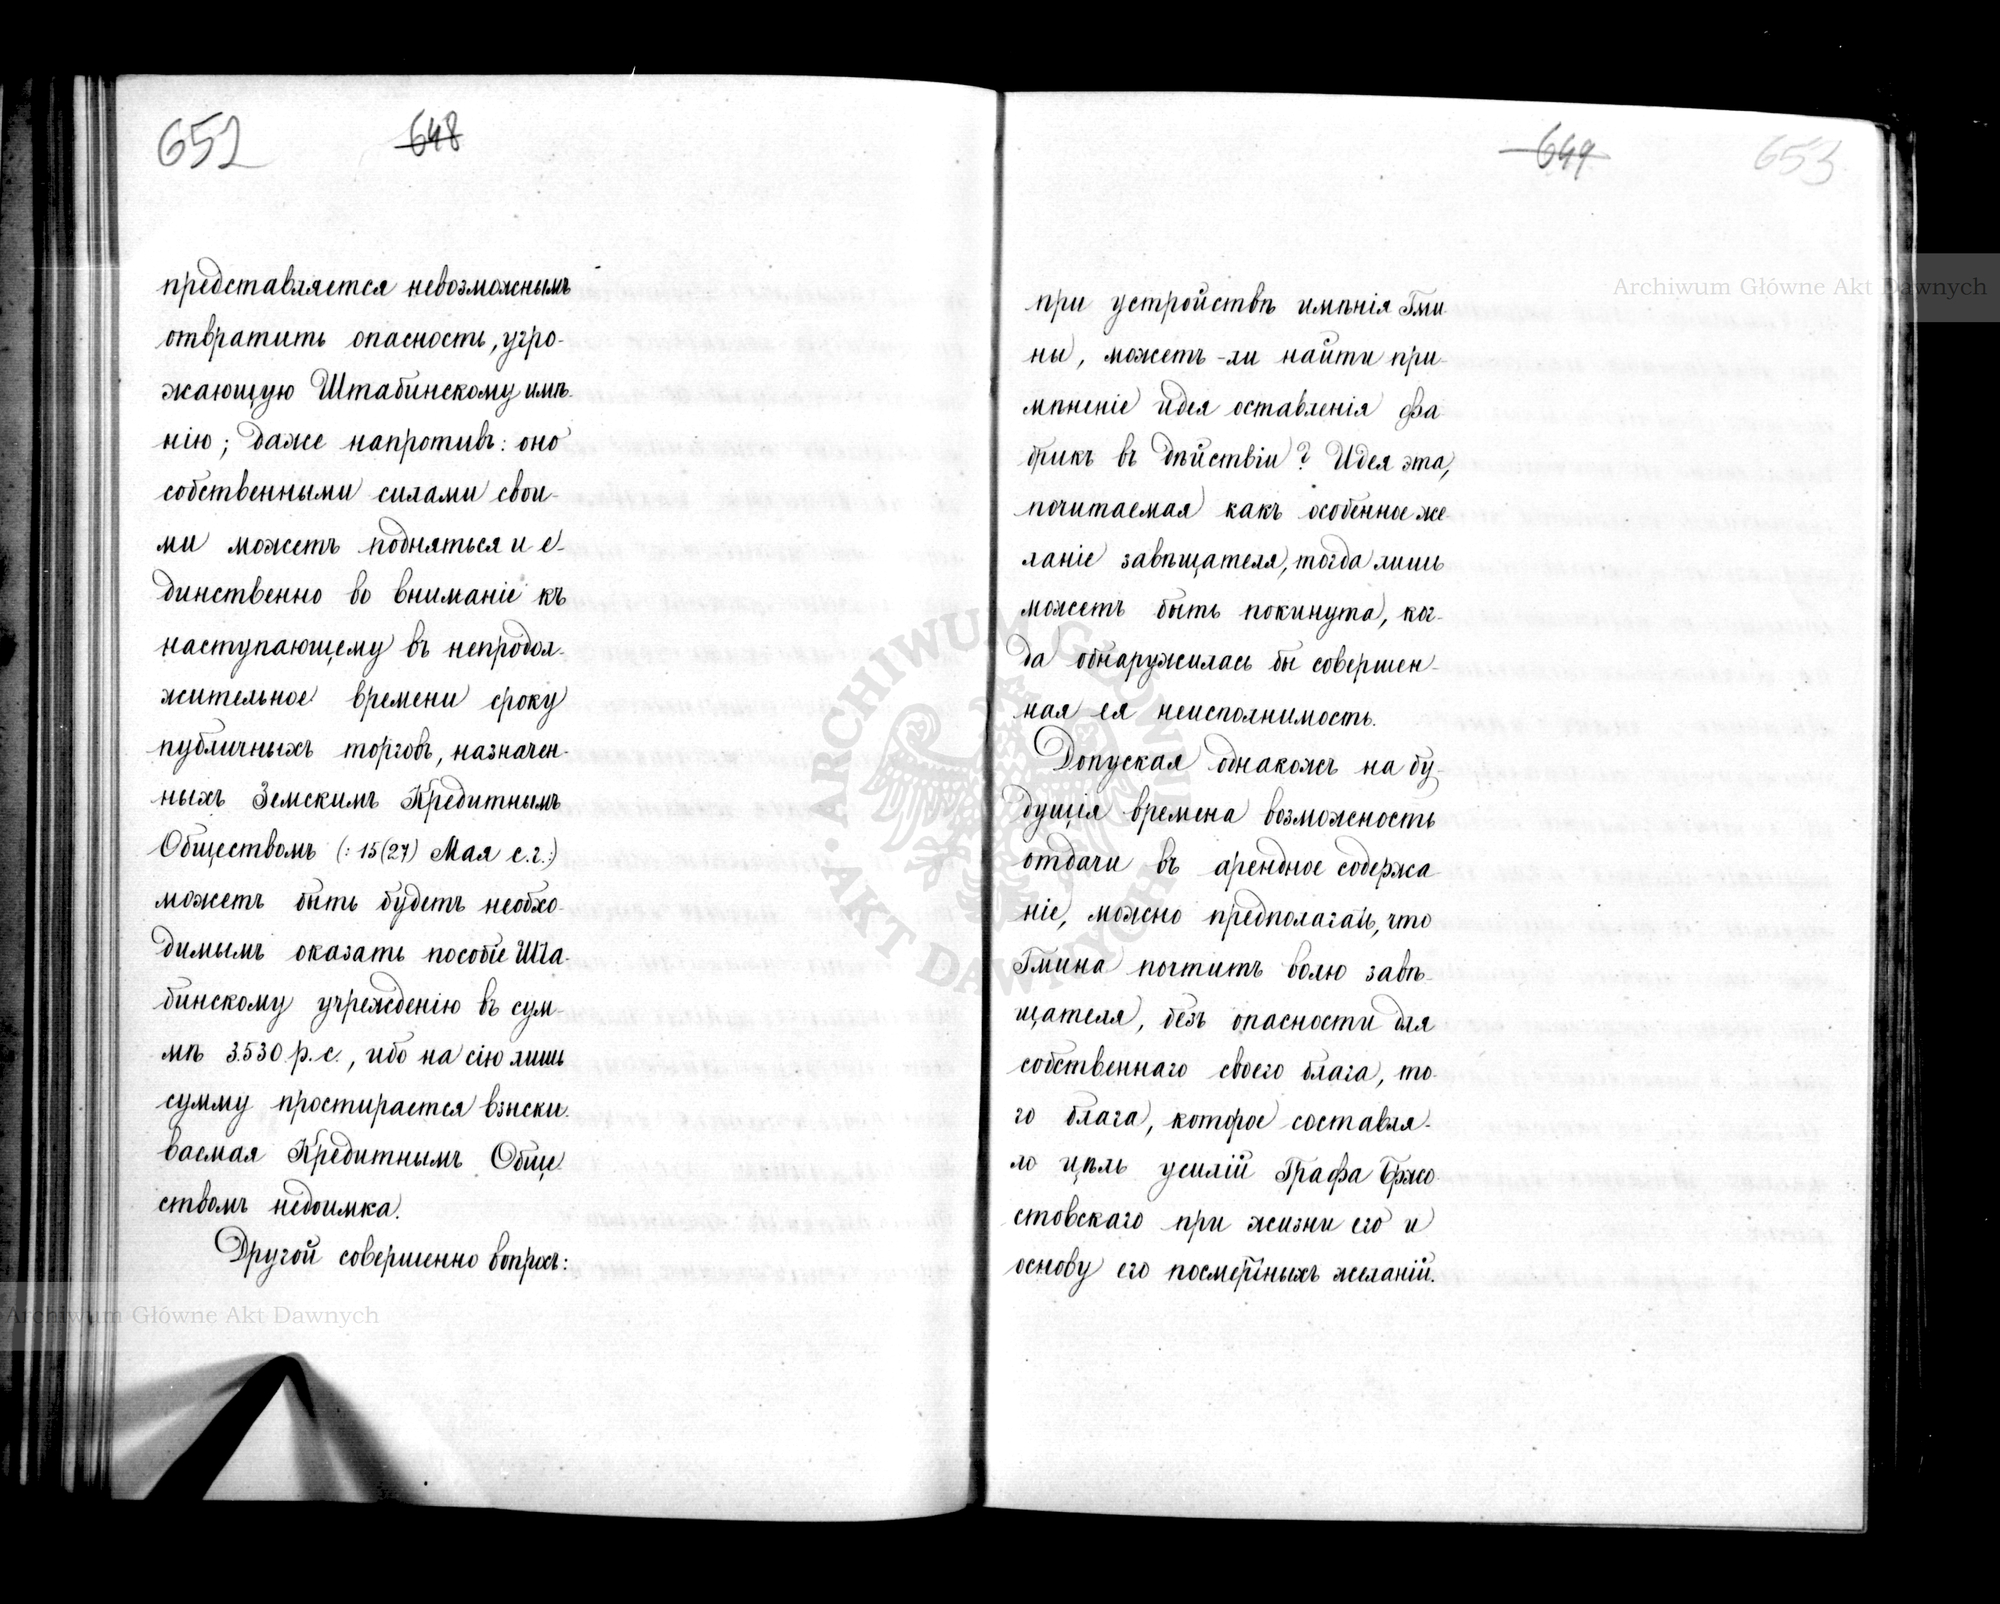 652
648
представляется невозможнымъ
отвратить опасность, угро-
жающую Штабинскому имѣ-
нію; даже напротивъ: оно
собственными силами свои-
ми можетъ подняться и е-
динственно во вниманіе къ
наступающему въ непродол-
жительное времени сроку
публичныхъ торговъ, назначен-
ныхъ Земскимъ Кредитнымъ
Обществомъ (: 15(27) Мая с.г.:)
можетъ быть будетъ необхо-
димымъ оказать пособіе Шта-
бинскому учрежденію въ сум-
мѣ 3.530 р. с., ибо на сію лишь
сумму простирается взыски-
ваемая Кредитнымъ Обще-
ствомъ недоимка.
Другой совершенно вопросъ:
649
653
при устройствѣ имѣнія Гми-
ны, можетъ-ли найти при-
мѣненіе идея оставленія фа-
брикъ въ дѣйствіи? Идея эта,
почитаемая какъ особенное же-
ланіе завѣщателя, тогда лишь
можетъ быть покинута, ког-
да обнаружилась бы совершен-
ная ея неисполнимость.
Допуская однакожъ на бу-
дущія времена возможность
отдачи въ арендное содержа-
ніе, можно предполагать, что
Гмина почтитъ волю завѣ-
щателя, безъ опасности для
собственнаго своего блага, то-
го блага, которое составля-
ло цѣль усилій Графа Бржо-
стовскаго при жизни его и
основу его посмертныхъ желаній.
Archiwum Główne Akt Dawnych
Archiwum Główne Akt Dawnych
ARCHIWUM GŁÓWNE AKT DAWNYCH